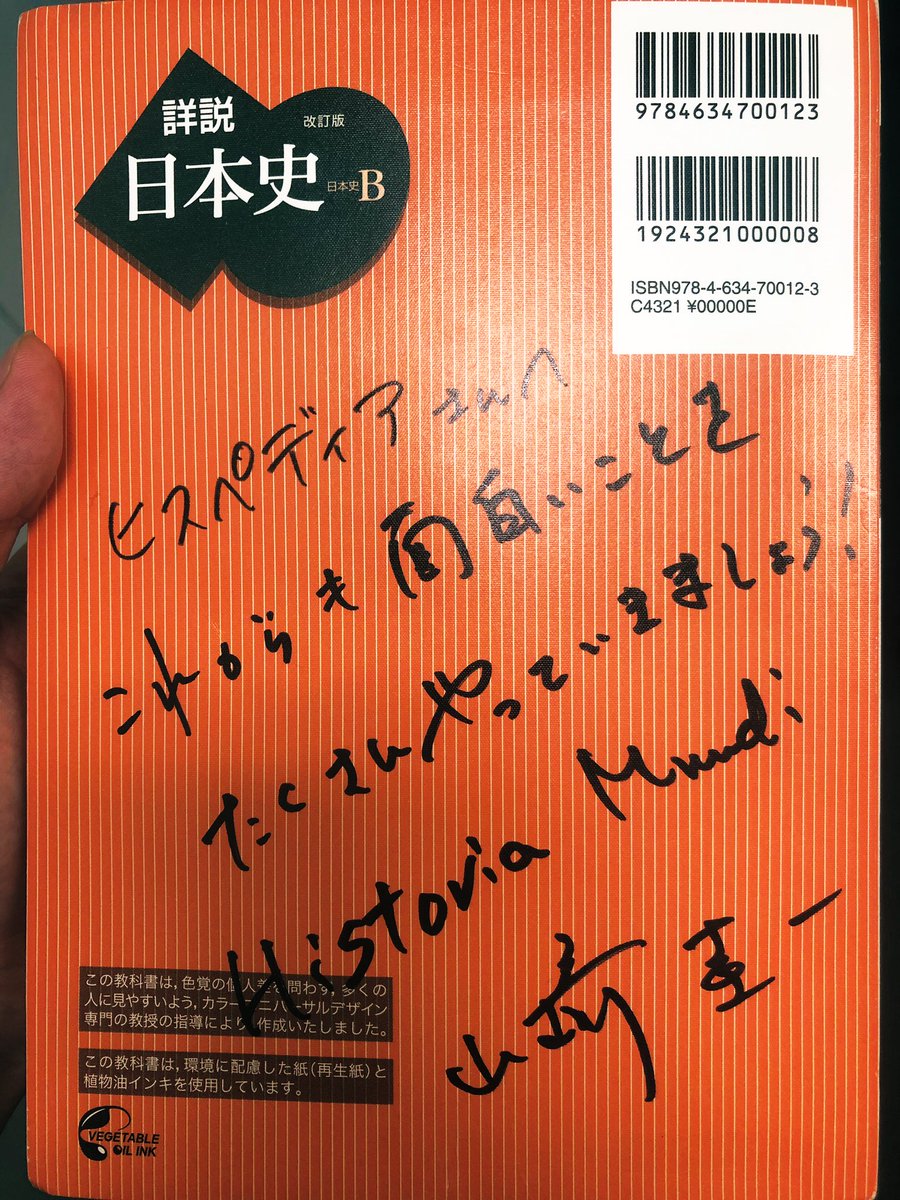 詳説
改訂版
日本史 日本史B
9784634700123
1924321000008
ISBN978-4-634-70012-3
C4321 ¥00000E
ヒスペディアさんへ
これからも面白いことを
たくさんやっていきましょう!
Historia Mundi
山﨑圭一
この教科書は,色覚の個人差を問わず,多くの
人に見やすいよう,カラーユニバーサルデザイン
専門の教授の指導により,作成いたしました。
この教科書は,環境に配慮した紙(再生紙)と
植物油インキを使用しています。
VEGETABLE
OIL INK